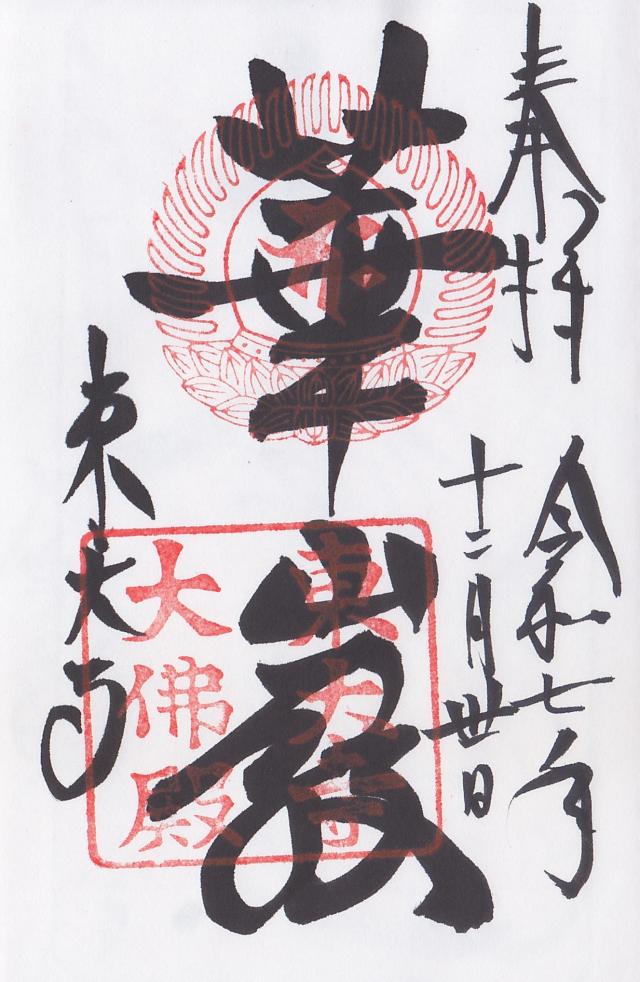 奉拝
令和七年
十二月卅日
華嚴
東大寺
東大寺
大佛殿